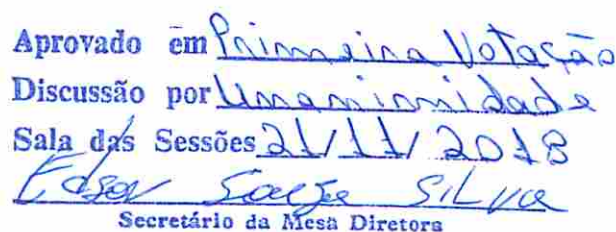 Aprovado em Primeira Votação
Discussão por Unanimidade
Sala das Sessões 21/11/2018
Edson Souza Silva
Secretário da Mesa Diretora